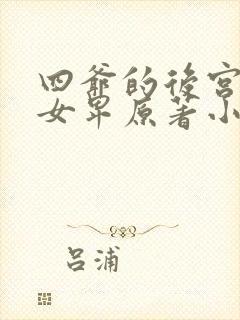 四爷的后宫
女卑原著小
吕浦